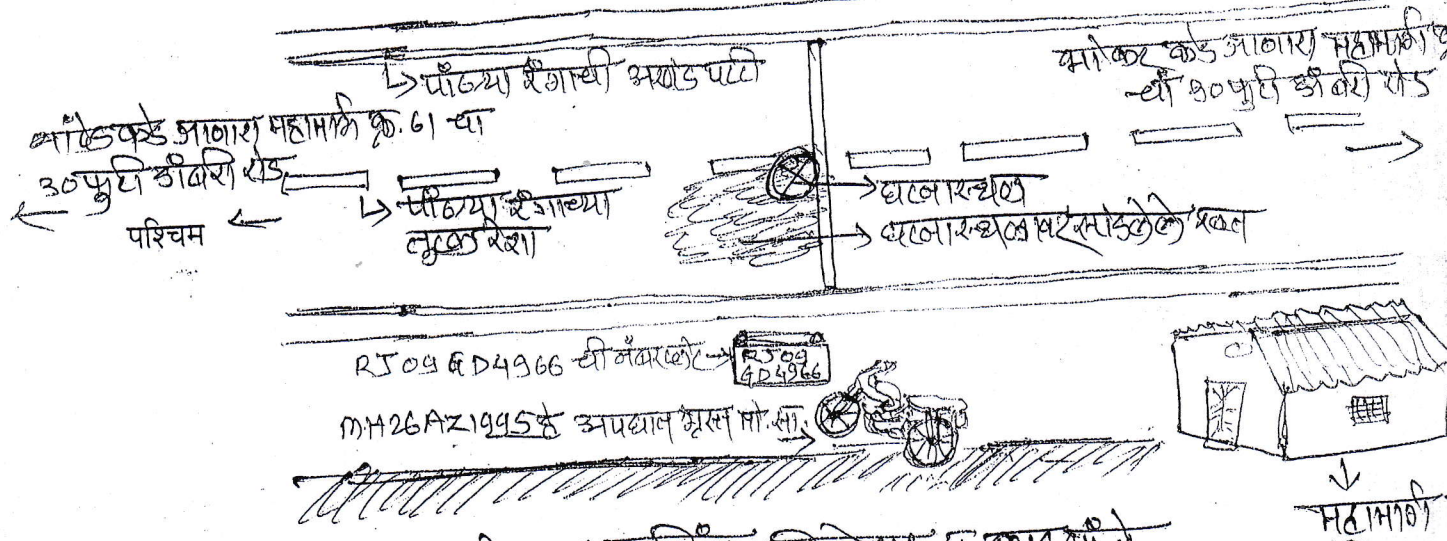 पांढऱ्या रंगाची अखंड पट्टी
भोकर कडे जाणारा महामार्ग
ची ३० फुटी डांबरी रोड
नांदेड कडे जाणारा महामार्ग क्र. 61 चा
३० फुटी डांबरी रोड
पश्चिम
पांढऱ्या रंगाच्या
तुटक रेषा
घटनास्थळ
घटनास्थळावर सांडलेले रक्त
RJ09GD4966 ची नंबरप्लेट
RJ09
GD4966
MH26AZ1995 हे अपघात ग्रस्त मो.सा.
महामार्ग